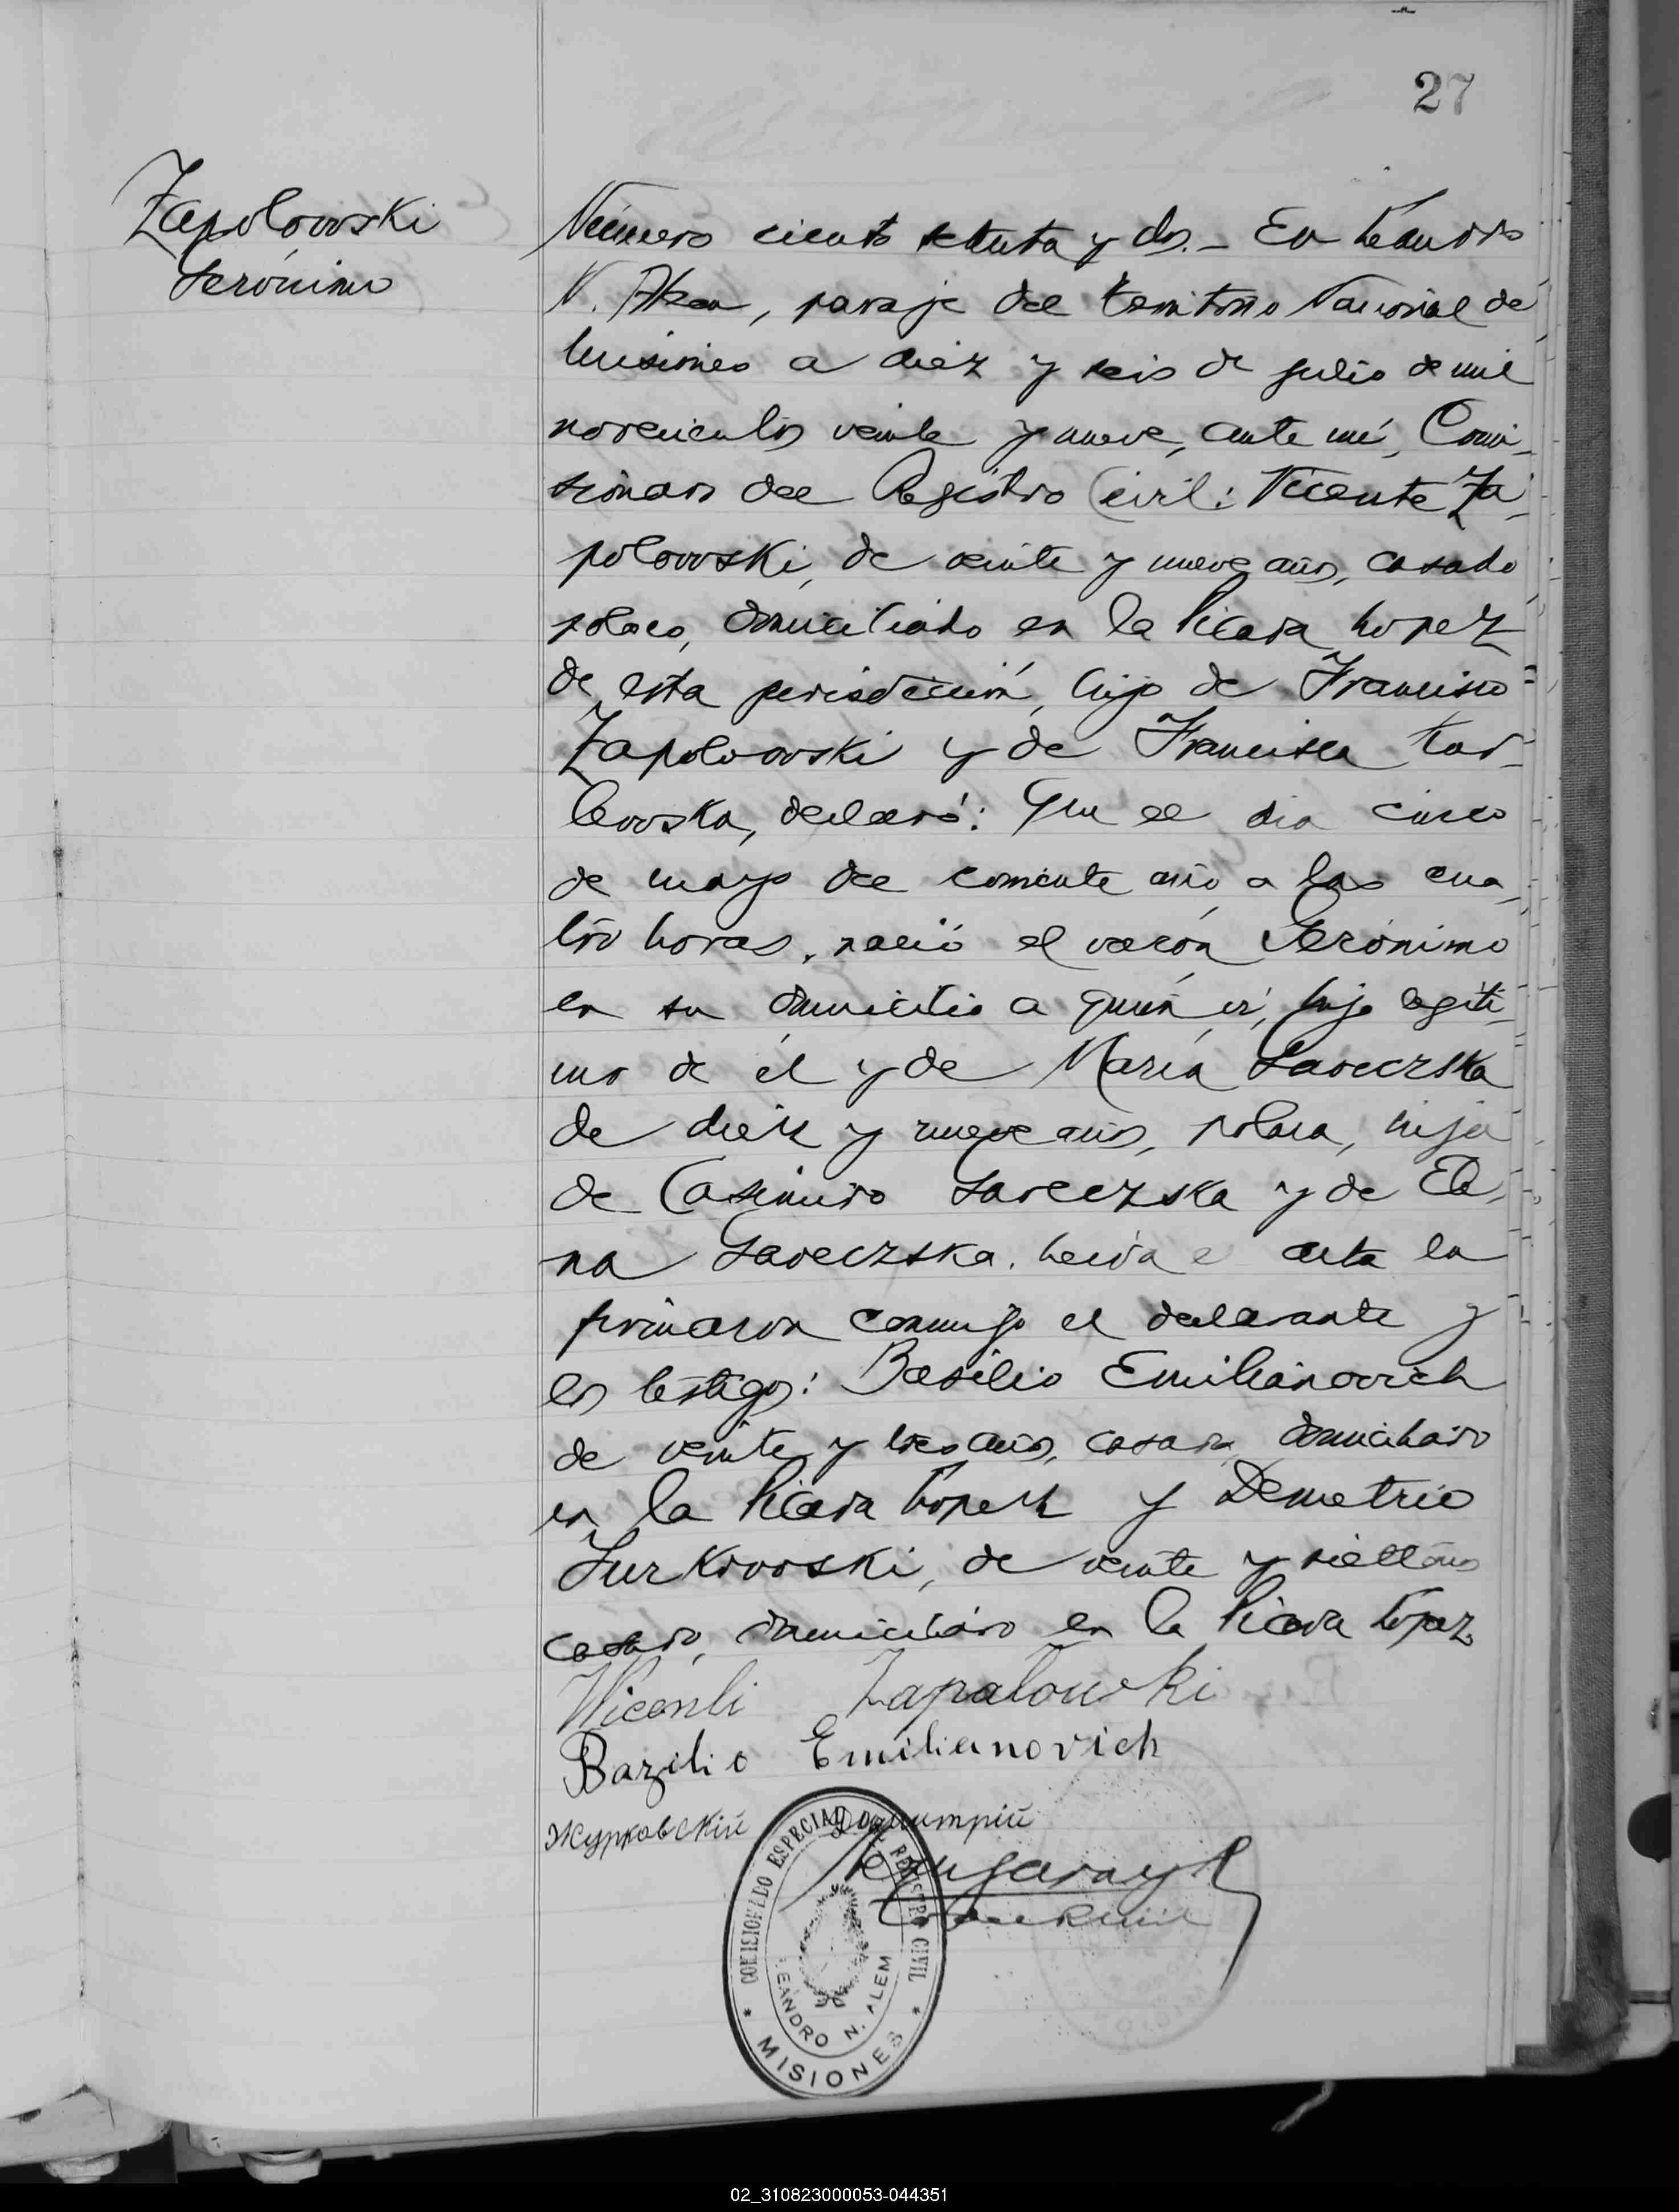 27
Zapolowski
Jerónimo
Número ciento setenta y dos.- En Leandro
N. Alem, paraje del Territorio Nacional de
Misiones a diez y seis de julio de mil
novecientos veinte y nueve, ante mí, Comi-
sionado del Registro Civil: Vicente Za-
polowski, de veinte y nueve años, casado
polaco, domiciliado en la Picada Lopez
de esta jurisdicción, hijo de Francisco
Zapolowski y de Francisca Kar-
lewska, declaró: Que el dia cinco
de mayo del corriente año a las cua-
tro horas, nació el varón Jerónimo
en su domicilio a quien vi, hijo legíti-
mo de él y de María Saveczska
de diez y nueve años, polaca, hija
de Casimiro Saveczska y de Ele-
na Saveczska. Leida el acta la
firmaron conmigo el declarante y
los testigos: Basilio Emilianovich
de veinte y tres años, casado, domiciliado
en la Picada Lopez y Demetrio
Jurkowski, de veinte y siete años
casado, domiciliado en la Picada Lopez.
Wicenti Zapalowski
Bazilio Emilianovich
Журковскій Дмитрій
COMISIONADO ESPECIAL DEL REGISTRO CIVIL
LEANDRO N. ALEM
* MISIONES *
02_310823000053-044351